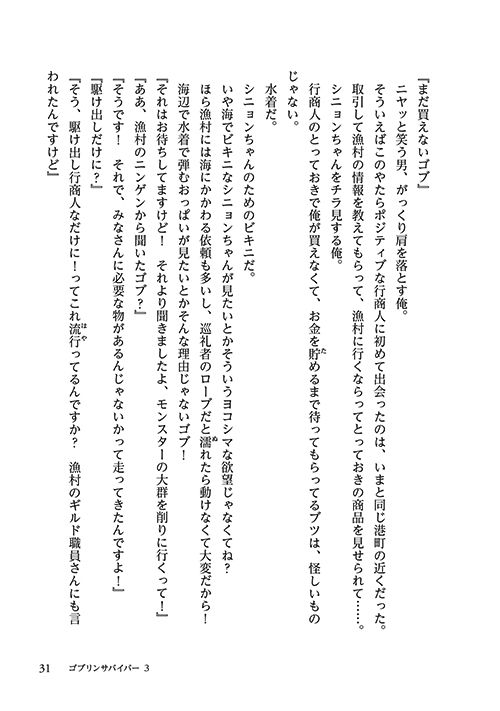 『まだ買えないゴブ』
ニヤッと笑う男、がっくり肩を落とす俺。
そういえばこのやたらポジティブな行商人に初めて出会ったのは、いまと同じ港町の近くだった。
取引して漁村の情報を教えてもらって、漁村に行くならってとっておきの商品を見せられて……。
シニョンちゃんをチラ見する俺。
行商人のとっておきで俺が買えなくて、お金を貯めるまで待ってもらってるブツは、怪しいもの
じゃない。
水着だ。
シニョンちゃんのためのビキニだ。
いや海でビキニなシニョンちゃんが見たいとかそういうヨコシマな欲望じゃなくてね?
ほら漁村には海にかかわる依頼も多いし、巡礼者のローブだと濡れたら動けなくて大変だから!
海辺で水着で弾むおっぱいが見たいとかそんな理由じゃないゴブ!
『それはお待ちしてますけど! それより聞きましたよ、モンスターの大群を削りに行くって!』
『ああ、漁村のニンゲンから聞いたゴブ?』
『そうです! それで、みなさんに必要な物があるんじゃないかって走ってきたんですよ!』
『駆け出しだけに?』
『そう、駆け出し行商人なだけに!ってこれ流行ってるんですか? 漁村のギルド職員さんにも言
われたんですけど』
31 ゴブリンサバイバー 3